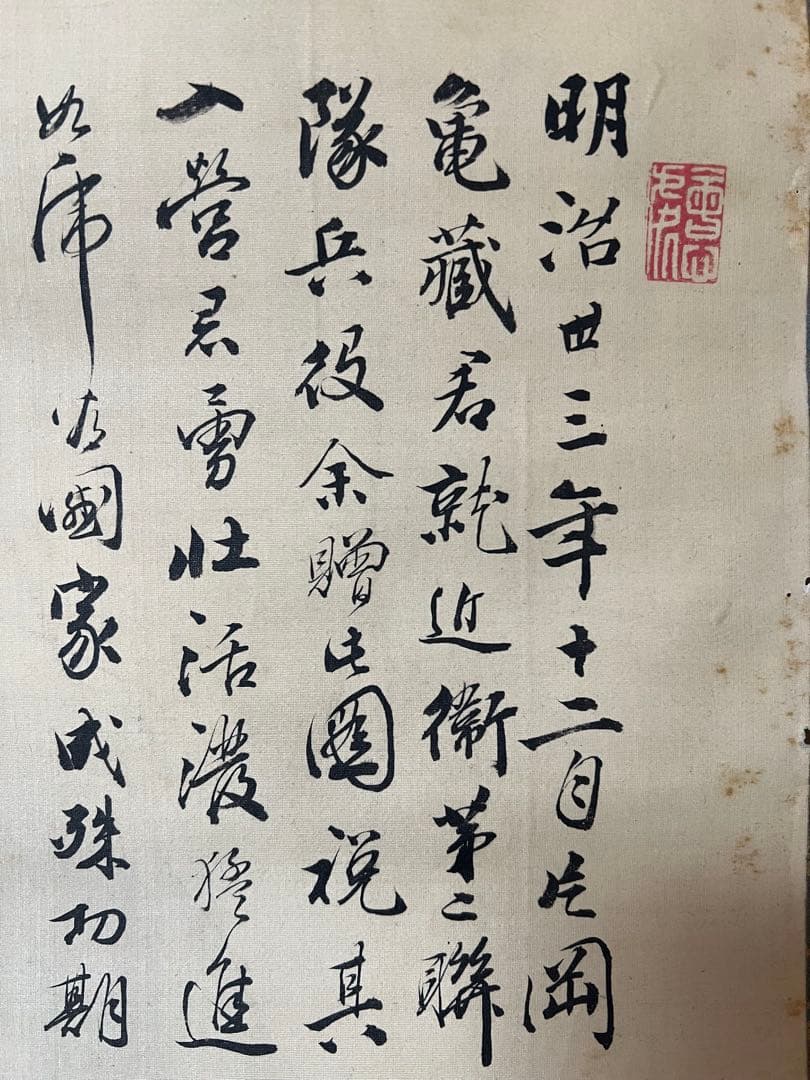 明治丗三年十二月片岡
亀藏君就近衞第二聯
隊兵役余贈此圖祝其
入營君勇壯活潑猛進
如虎為國家成殊功期